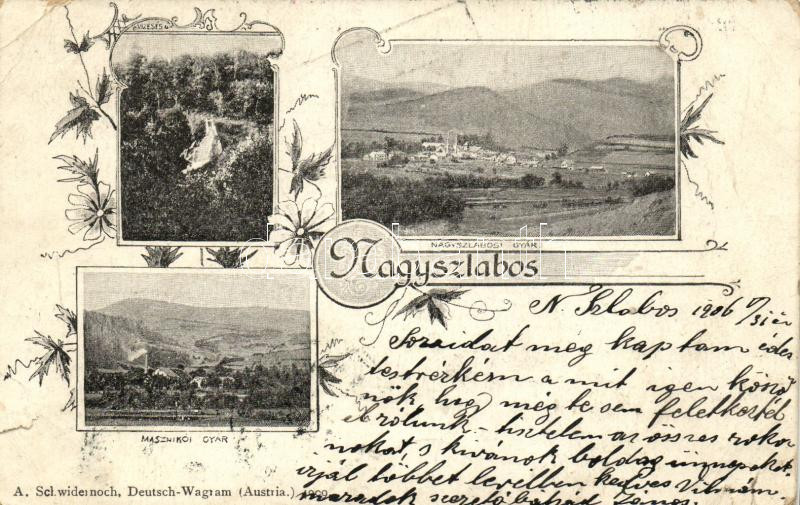 NAGYSZLABOSI GYÁR
Nagyszlabos
MASZNIKÓI GYÁR
N. Szlabos 1906 V/31 én
Soraidat meg kaptam édes
testvérkém a mit igen köszö
nök hogy még te sem feletkeztél
el rólunk tisztelem az összes roko
nokat, s kivánok boldog ünnepeket
irjál többet levélben kedves Vilmám.
maradok szerető bátyád János.
A. Schwidernoch, Deutsch-Wagram (Austria.)